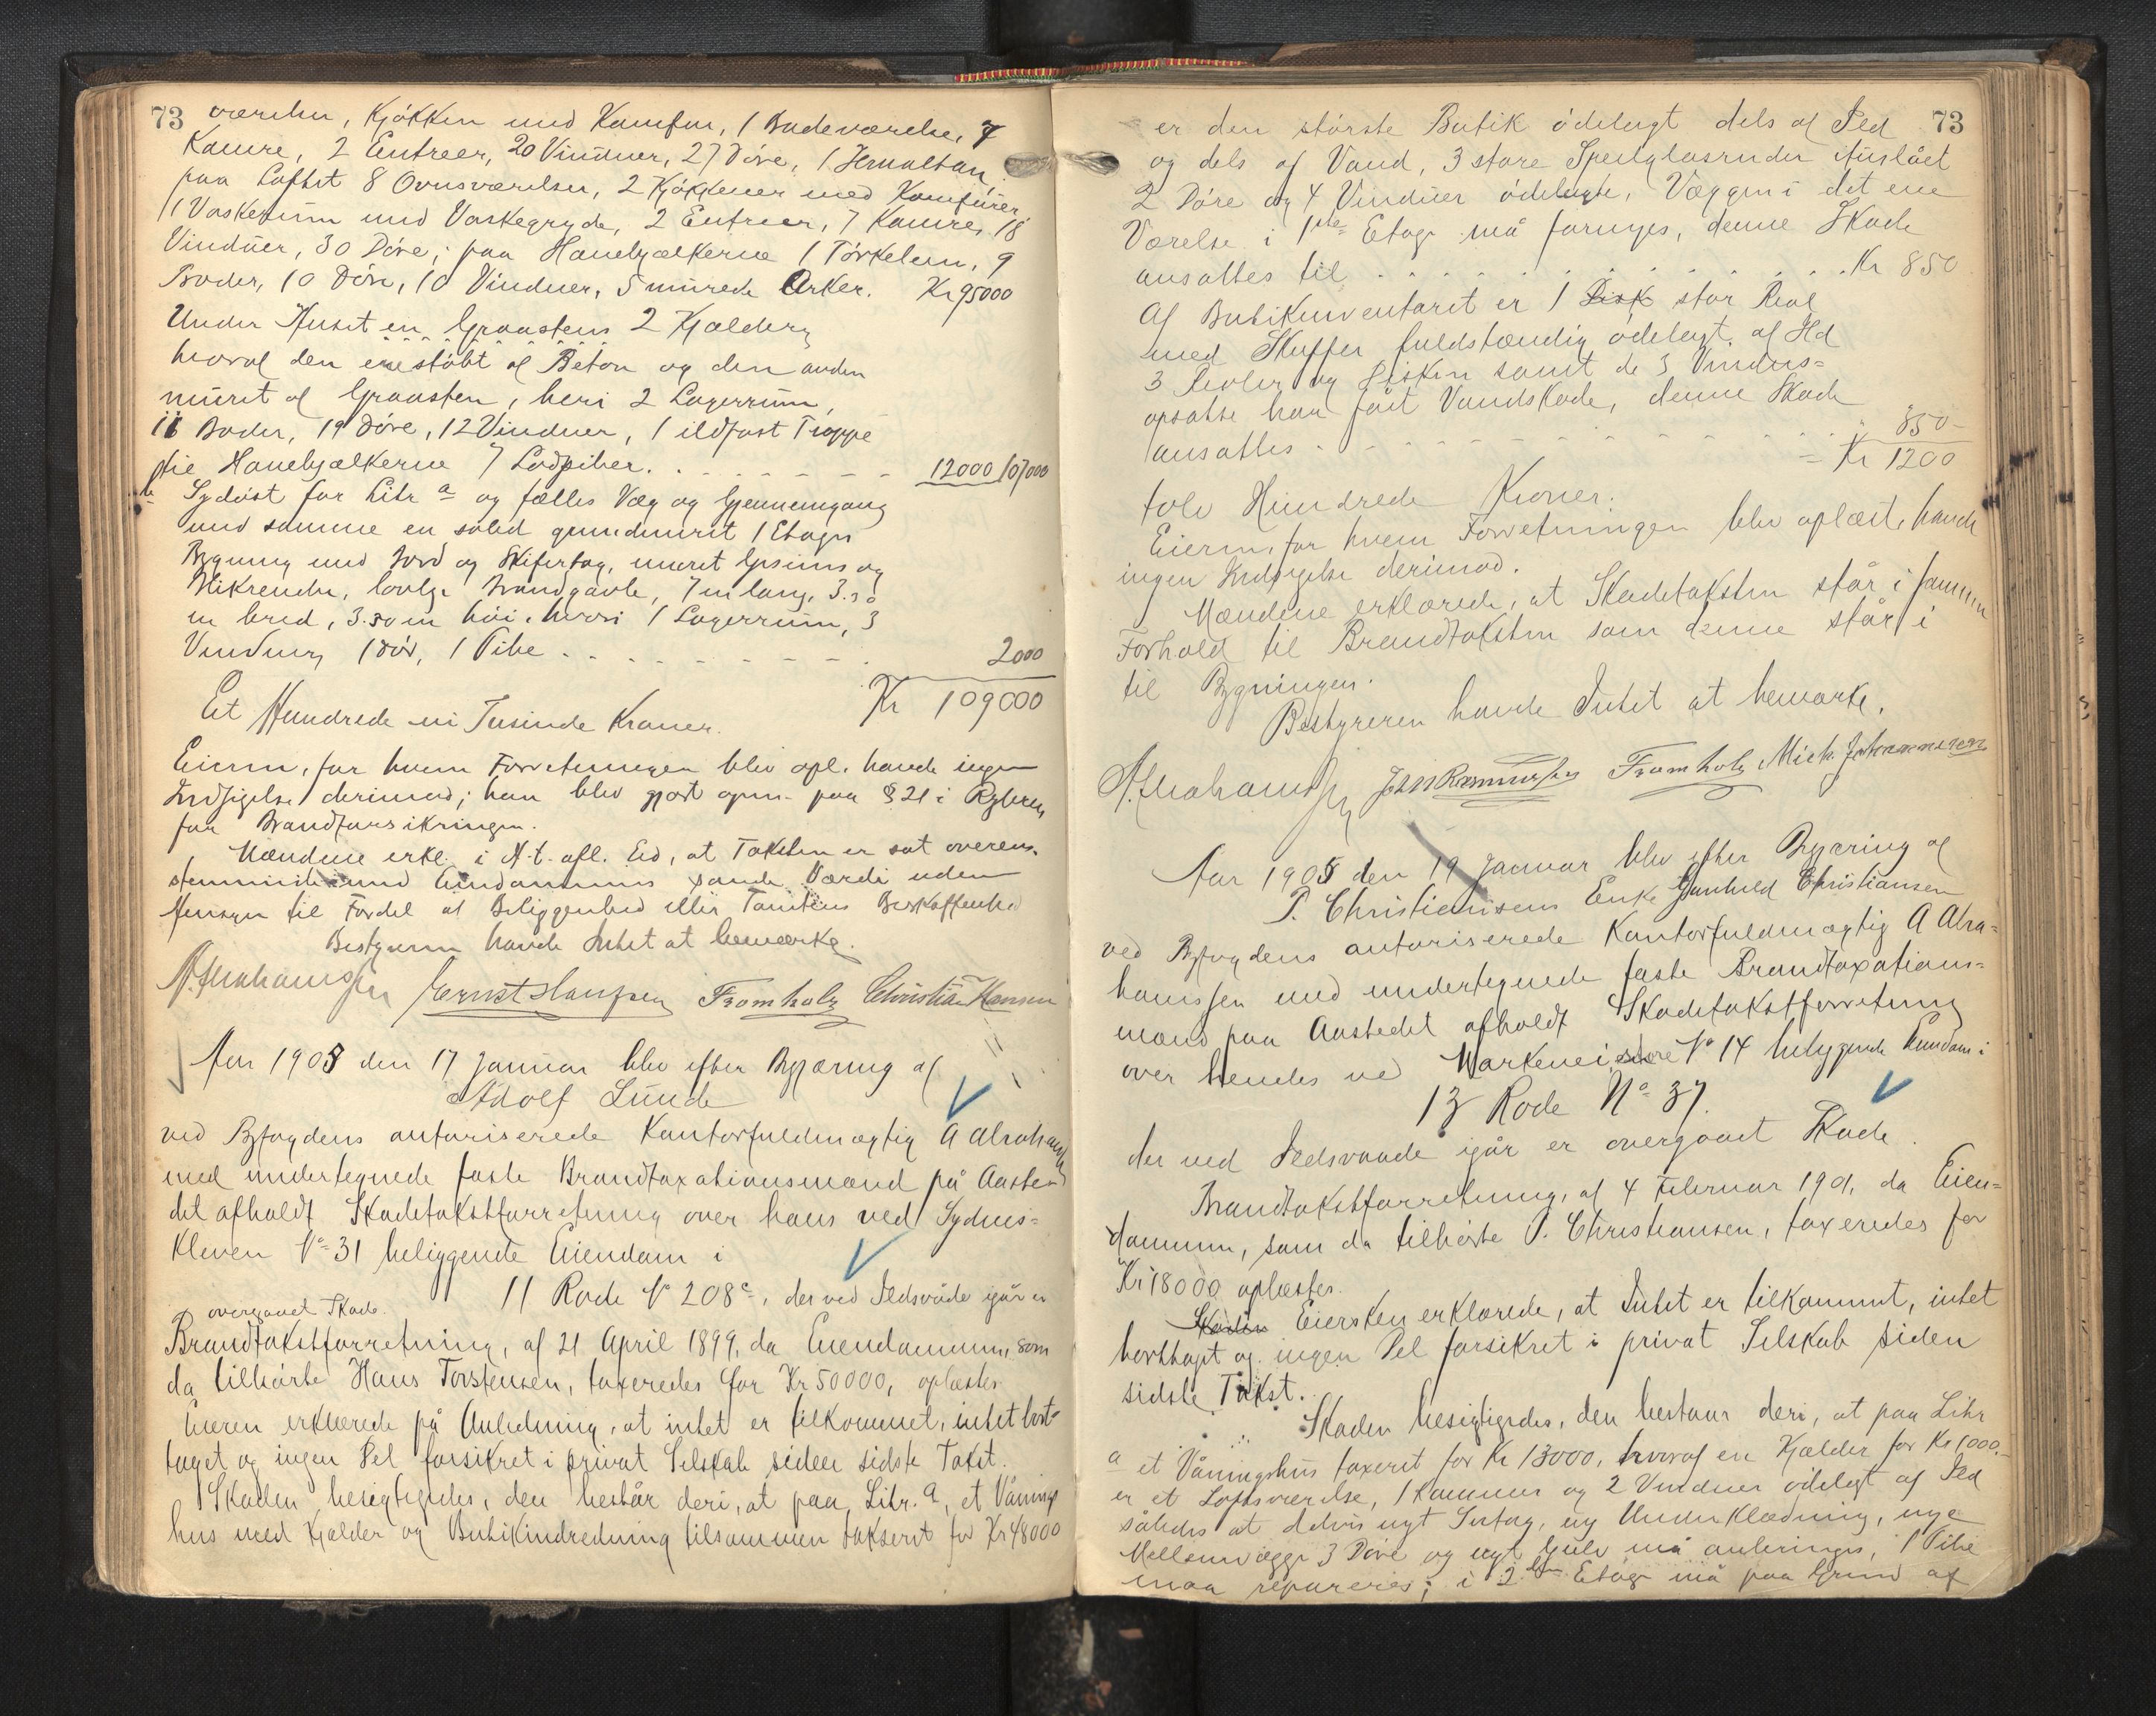 73
værelser, Kjøkken med Komfur, 1 Badeværelse, 7
Kamre, 2 Entreer, 20 Vinduer, 27 Døre, 1
paa Loftet 8 Ovnsværelser, 2 Kjøkkener med Komfurer,
1 Vaskerum med Vaskegryde, 2 Entreer, 7 Kamre, 18
Vinduer, 30 Døre; paa Hanebjælkerne 1 Tørkelem, 9
Boder, 10 Døre, 10 Vinduer, 5 murede Arker. Kr 95000
Under Huset en Graastens 2 Kjældere
hvoraf den ene støbt af Beton og den anden
muret af Graasten, heri 2 Lagerrum,
16 Boder, 19 Døre, 12 Vinduer, 1 ildfast Trappe
til Hanebjælkerne 7 Lodpiber. 12000 107000
b Sydøst for Litr a og fælles Væg og Gjennemgang
med samme en solid grundmuret 1 Etages
Bygning med Jord og Skifertag, muret Gesims og
Blikrender, lovlge Brandgavle, 7 m lang, 3.30
m bred, 3.30 m høi, hvori 1 Lagerrum, 3
Vinduer, 1 Dør, 1 Pibe 2000
Kr 109000
Et Hundrede ni Tusinde Kroner.
Eieren, for hvem Forretningen blev opl. havde ingen
Indsigelse derimod; han blev gjort opm. paa § 21 i Reglerne
for Brandforsikringen.
Mændene erkl. i H. t. afl. Ed, at Taksten er sat overens-
stemmende med Eiendommens sande Værdi uden
Hensyn til Fordel af Beliggenhed eller Tomtens Beskaffenhed
Bestyreren havde Intet at bemærke.
A. Abrahamssen Ernst Hansen Fromholz Christian Hansen
Aar 1905 den 17 Januar blev efter Begjæring af
Adolf Lunde
ved Byfogdens autoriserede Kontorfuldmægtig A Abrahamssen
med undertegnede faste Brandtaxationsmænd på Aaste-
det afholdt Skadetakstforretning over hans ved Sydnes-
Kleven No 31 beliggende Eiendom i
11 Rode No 208c, der ved Ildsvåde igår er
overgaaet Skade.
Brandtakstforretning, af 21 April 1899, da Eiendommen, som
da tilhørte Hans Torstensen, taxeredes for Kr 50000, oplæstes
Eieren erklærede på Anledning, at intet er tilkommet, intet bort-
taget og ingen Del forsikret i privat Selskab siden sidste Takst.
Skaden besigtigedes, den består deri, at paa Litr. a, et Vånings
hus med Kjelder og Butikindredning tilsammen takseret for Kr 48000
73
er den største Butik ødelagt dels af Ild
og dels af Vand, 3 store Speilglasruder itusláet
2 Døre og 4 Vinduer ødelagte, Væggen i det ene
Værelse i 1ste Etage må fornyes, denne Skade
ansattes til Kr 850
Af Butikinventaret er 1 Disk stor Reol
med Skuffer fuldstændig ødelagt af Ild
3 Reoler og Disken samt de 3 Vindus-
opsatse har fået Vandskade, denne Skade
ansattes 350
= Kr 1200
tolv Hundrede Kroner.
Eieren, for hvem Forretningen blev oplæst, havde
ingen Indsigelse derimod.
Mændene erklærede, at Skadetaksten står i samme
Forhold til Brandtaksten som denne står i
til Bygningen.
Bestyreren havde Intet at bemærke.
A. Abrahamssen Joh Rasmussen Fromholz Mich. Johannessen
Aar 1905 den 19 Januar blev efter Begjæring af
P. Christiansens Enke Gunhild Christiansen
ved Byfogdens autoriserede Kontorfuldmægtig A Abra-
hamssen med undertegnede faste Brandtaxations-
mænd paa Aastedet afholdt Skadetakstforretning
over hendes ved Markeveien No 14 beliggende Eiendom i
13 Rode No 37.
der ved Ildsvaade igår er overgaaet Skade.
Brandtakstforretning, af 4 Februar 1901, da Eien-
dommen, som da tilhørte P. Christiansen, taxeredes for
Kr 18000 oplæstes.
Skaden Eiersken erklærede, at Intet er tilkommet, intet
borttaget og ingen Del forsikret i privat Selskab siden
sidste Takst.
Skaden besigtigedes, den bestaar deri, at paa Litr
a et Våningshus taxeret for Kr 13000, hvoraf en Kjælder for Kr 1000.-
er et Loftsværelse, 1 Kammer og 2 Vinduer ødelagt af Ild
således at delvis nyt Sutag, ny Underklædning, nye
Mellemvægge 3 Døre og nyt Gulv må anbringes, 1 Pibe
maa repareres; i 2den Etage må paa Grund af